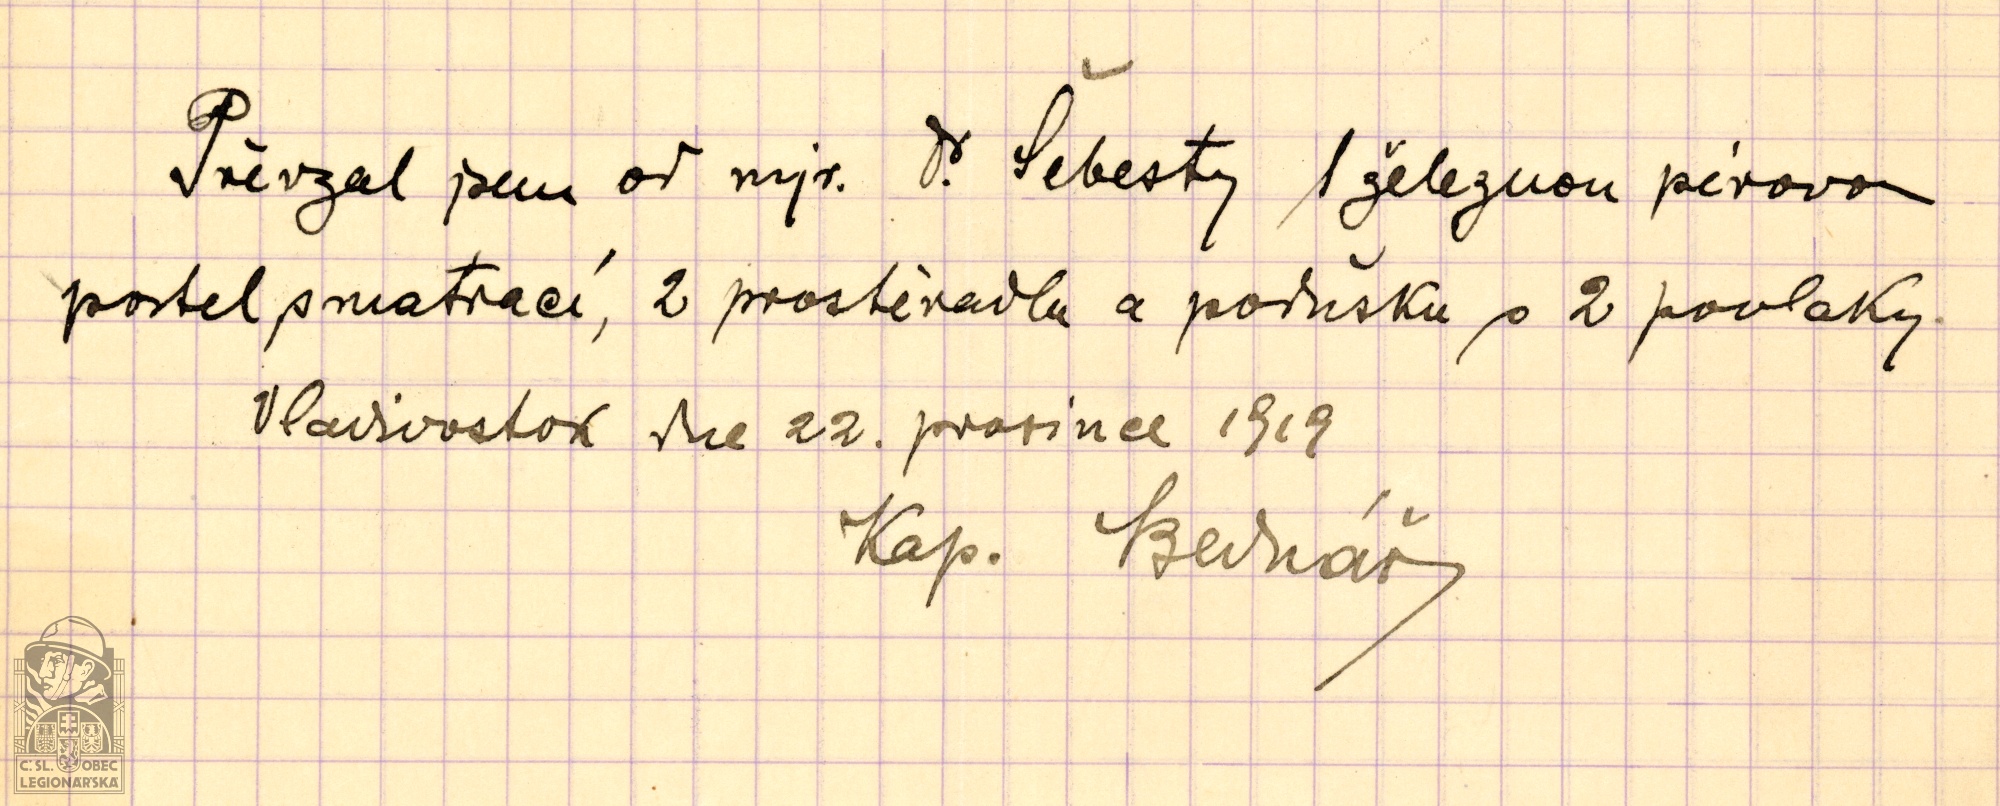 Převzal jsem od mjr. Dr. Šebesty 1 železnou pérovou
postel s matrací, 2 prostěradla a podušku s 2 povlaky.
Vladivostok dne 22. prosince 1919
Kap. Bednář
Č. SL. OBEC
LEGIONÁŘSKÁ